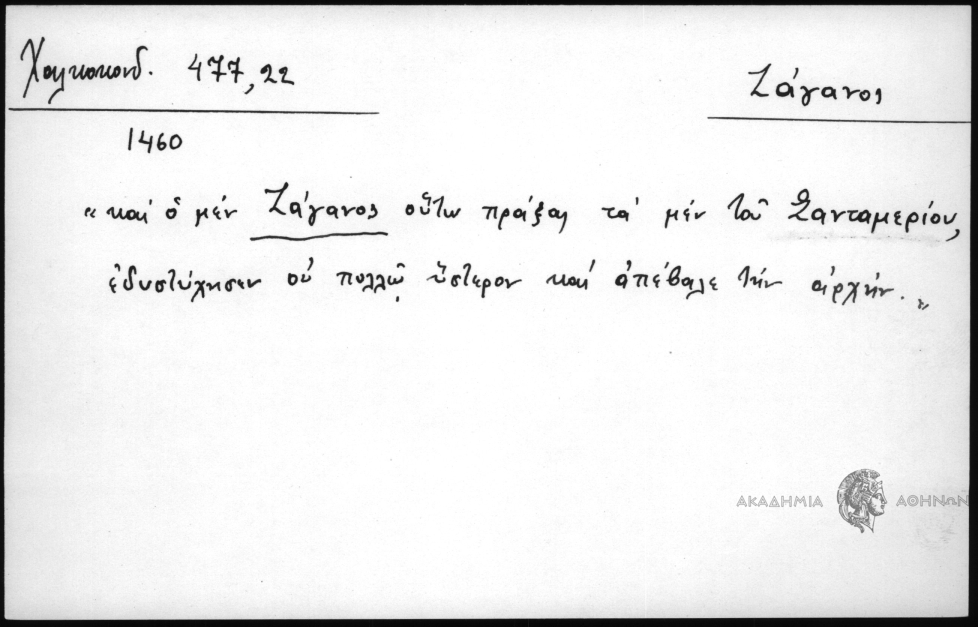 Χαλκοκονδ. 477,22
Ζάγανος
1460
« καὶ ὁ μὲν Ζάγανος οὕτω πράξας τὰ μὲν τοῦ Σανταμερίου,
ἐδυστύχησεν οὐ πολλῷ ὕστερον καὶ ἀπέβαλε τὴν ἀρχήν. »
ΑΚΑΔΗΜΙΑ ΑΘΗΝΩΝ